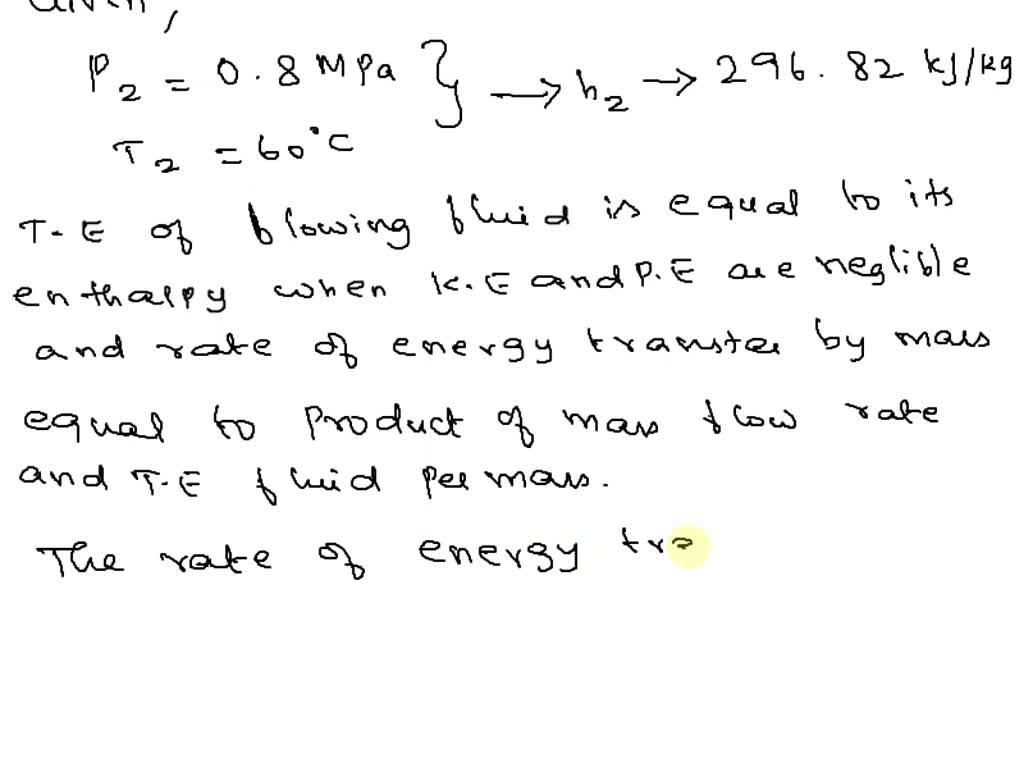 Given,
P2 = 0.8 MPa } → h2 → 296.82 kJ/kg
T2 = 60°C
T-E of flowing fluid is equal to its
enthalpy when K.E and P.E are neglible
and rate of energy transfer by mass
equal to product of mass flow rate
and T-E fluid per mass.
The rate of energy tra